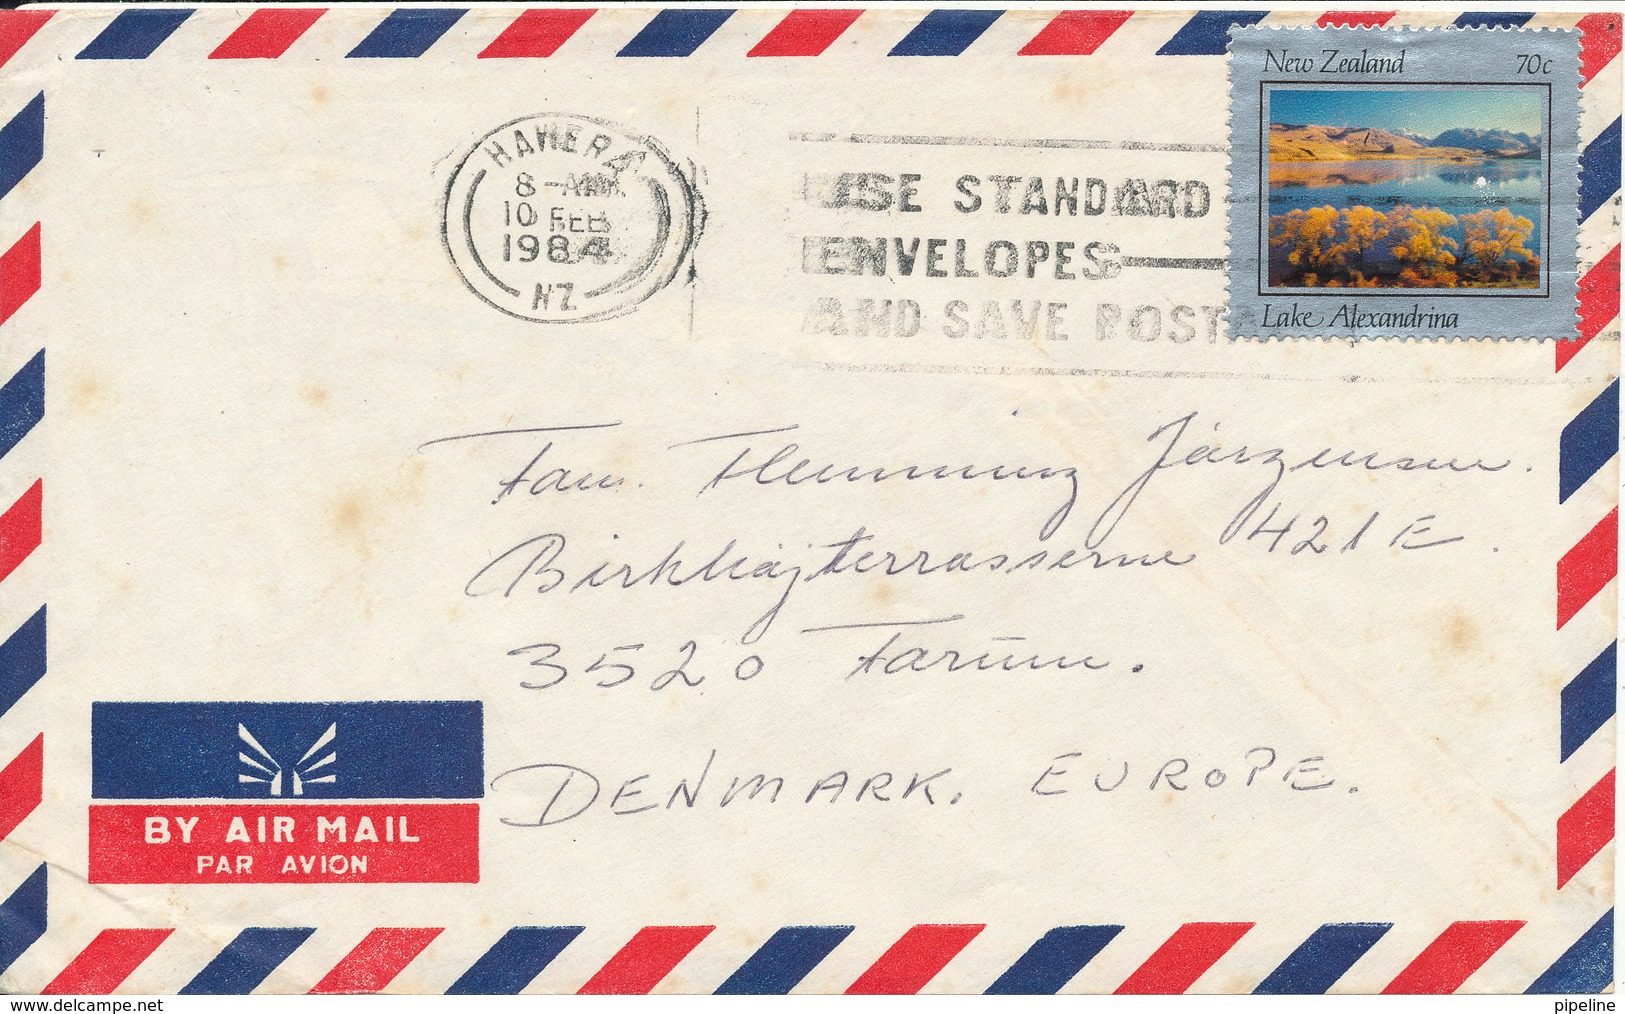 New Zealand 70c
Lake Alexandrina
HAWERA
8-AM
10 FEB
1984
NZ
USE STANDARD
ENVELOPES
AND SAVE POSTA
Fam. Flemming Jörgensen.
Birkhöjterrasserne 421 E.
3520 Farum.
DENMARK. EUROPE.
BY AIR MAIL
PAR AVION
www.delcampe.net
pipeline